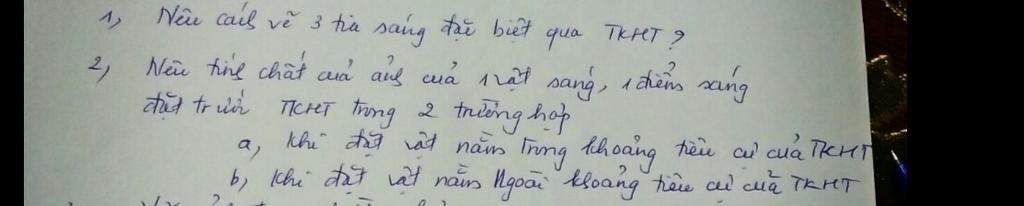 1, Nêu cách vẽ 3 tia sáng đặc biệt qua TKHT?
2, Nêu tính chất của ảnh của 1 vật sáng, 1 điểm sáng
đặt trước TKHT trong 2 trường hợp
a, Khi đặt vật nằm trong khoảng tiêu cự của TKHT
b, Khi đặt vật nằm ngoài khoảng tiêu cự của TKHT